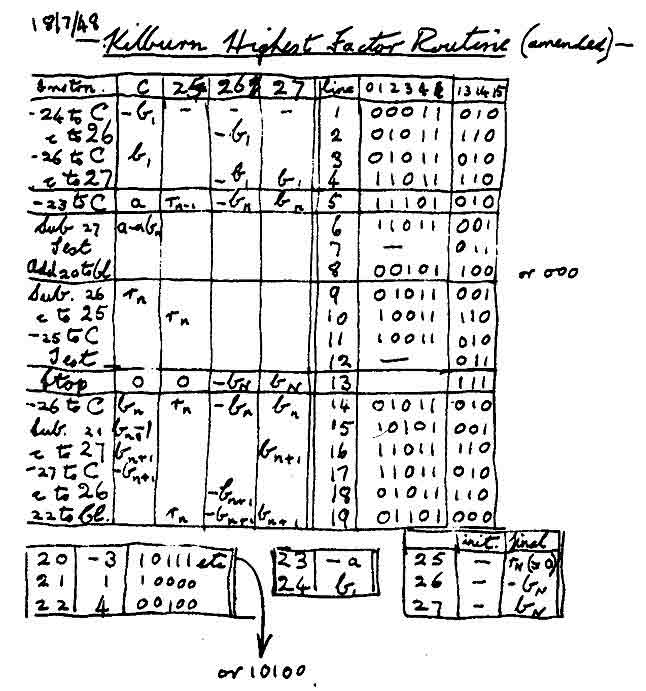 18/7/48
— Kilburn Highest Factor Routine (amended) —
Instn. C 25 26 27 line 0 1 2 3 4 5 13 14 15
-24 to C -b₁ - - - 1 00011 010
c to 26 -b₁ 2 01011 110
-26 to C b₁ 3 01011 010
c to 27 -b₁ b₁ 4 11011 110
-23 to C a rₙ₋₁ -bₙ bₙ 5 11101 010
Sub. 27 a-abₙ 6 11011 001
Test 7 — 011
Add 20 to bl. 8 00101 100 or 000
Sub. 26 rₙ 9 01011 001
c to 25 rₙ 10 10011 110
-25 to C 11 10011 010
Test 12 — 011
Stop 0 0 -b_N b_N 13 111
-26 to C bₙ rₙ -bₙ bₙ 14 01011 010
Sub. 21 bₙ-1 15 10101 001
c to 27 bₙ₊₁ bₙ₊₁ 16 11011 110
-27 to C -bₙ₊₁ 17 11011 010
c to 26 -bₙ₊₁ 18 01011 110
22 to bl. rₙ -bₙ₊₁ bₙ₊₁ 19 01101 000
20 -3 10111 etc
21 1 10000
22 4 00100
or 10100
23 -a
24 b₁
init. final
25 - r_N (=0)
26 - -b_N
27 - b_N